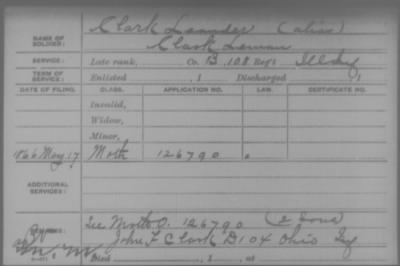 Clark Leander (alias)
NAME OF SOLDIER: Clark Leman
SERVICE: Late rank, Co. B, 108 Reg't Ill Inf
TERM OF SERVICE: Enlisted , 1 Discharged , 1
DATE OF FILING. CLASS. APPLICATION NO. LAW. CERTIFICATE NO.
Invalid,
Widow,
Minor,
1866 May 17 Moth 126790
ADDITIONAL SERVICES:
See Moths O. 126790 (2 sons)
John F Clark D 104 Ohio Inf
Died , 1 , at